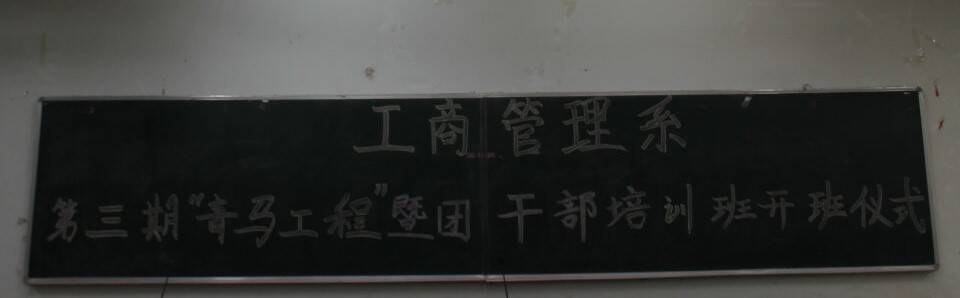 工商管理系
第三期“青马工程”暨团干部培训班开班仪式